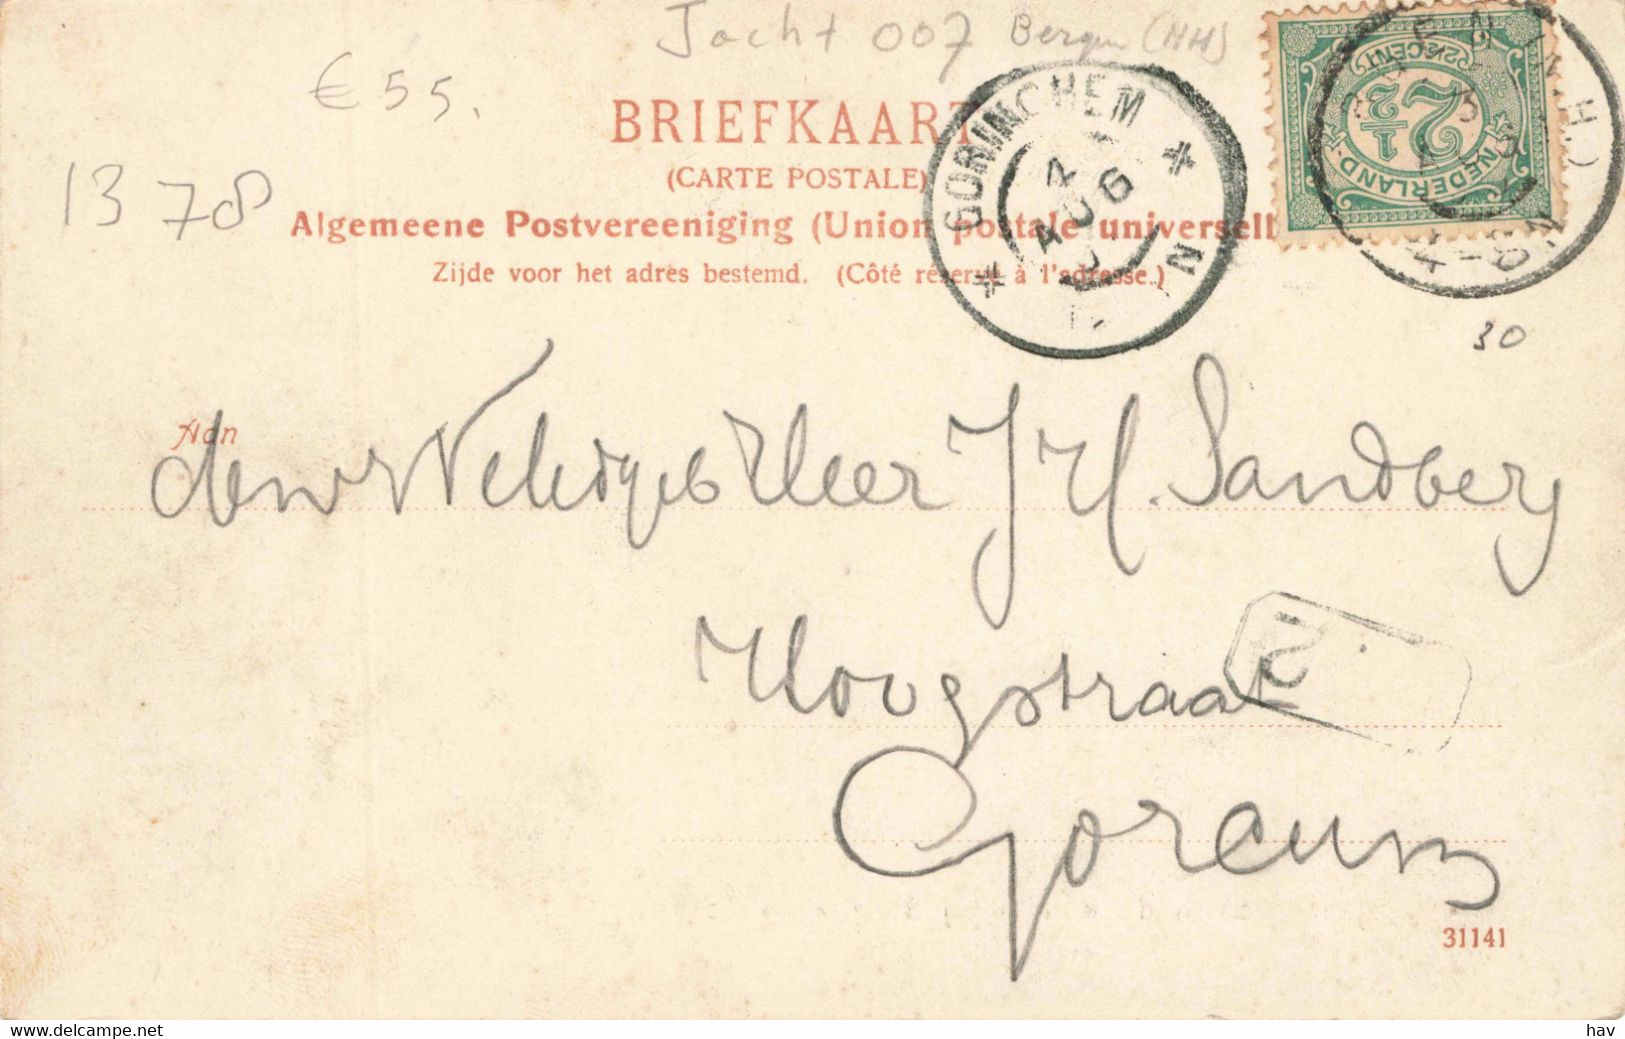 Jacht 007 Bergen (NH)
€ 55.
BRIEFKAART
(CARTE POSTALE)
13 78
Algemeene Postvereeniging (Union postale universell
Zijde voor het adres bestemd. (Côté réservé à l'adresse.)
GORINCHEM
4 AUG
N
NEDERLAND
2½
2½ CENT
30
Aan
den WelEdgeb Heer J H. Sandberg
Hoogstraat
2
Gorcum
31141
www.delcampe.net
hav